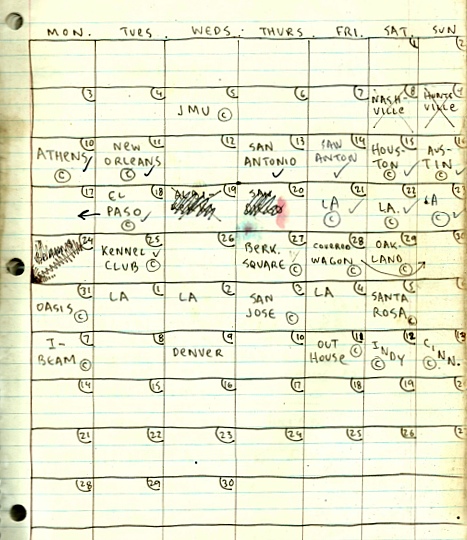 MON. TUES. WEDS. THURS. FRI. SAT. SUN
1 2
3 4 5 6 7 8 9
JMU © NASHVILLE HUNTSVILLE
10 11 12 13 14 15 16
ATHENS ✓ NEW SAN SAN HOUS- AUS-
© ORLEANS ✓ ANTONIO ANTON TON ✓ TIN ✓
© ✓ ✓ © ©
17 18 19 20 21 22 23
← EL LA ✓ LA. ✓ LA ✓
PASO ✓ © © ©
©
24 25 26 27 28 29 30
KENNEL ✓ BERK. COVERED OAK.
CLUB © SQUARE © WAGON © LAND
©
31 1 2 3 4 5
OASIS © LA LA SAN LA SANTA
JOSE © ROSA ©
7 8 9 10 11 12 13
I- DENVER OUT INDY CINN.
BEAM © HOUSE © © ©
14 15 16 17 18 19
21 22 23 24 25 26
28 29 30